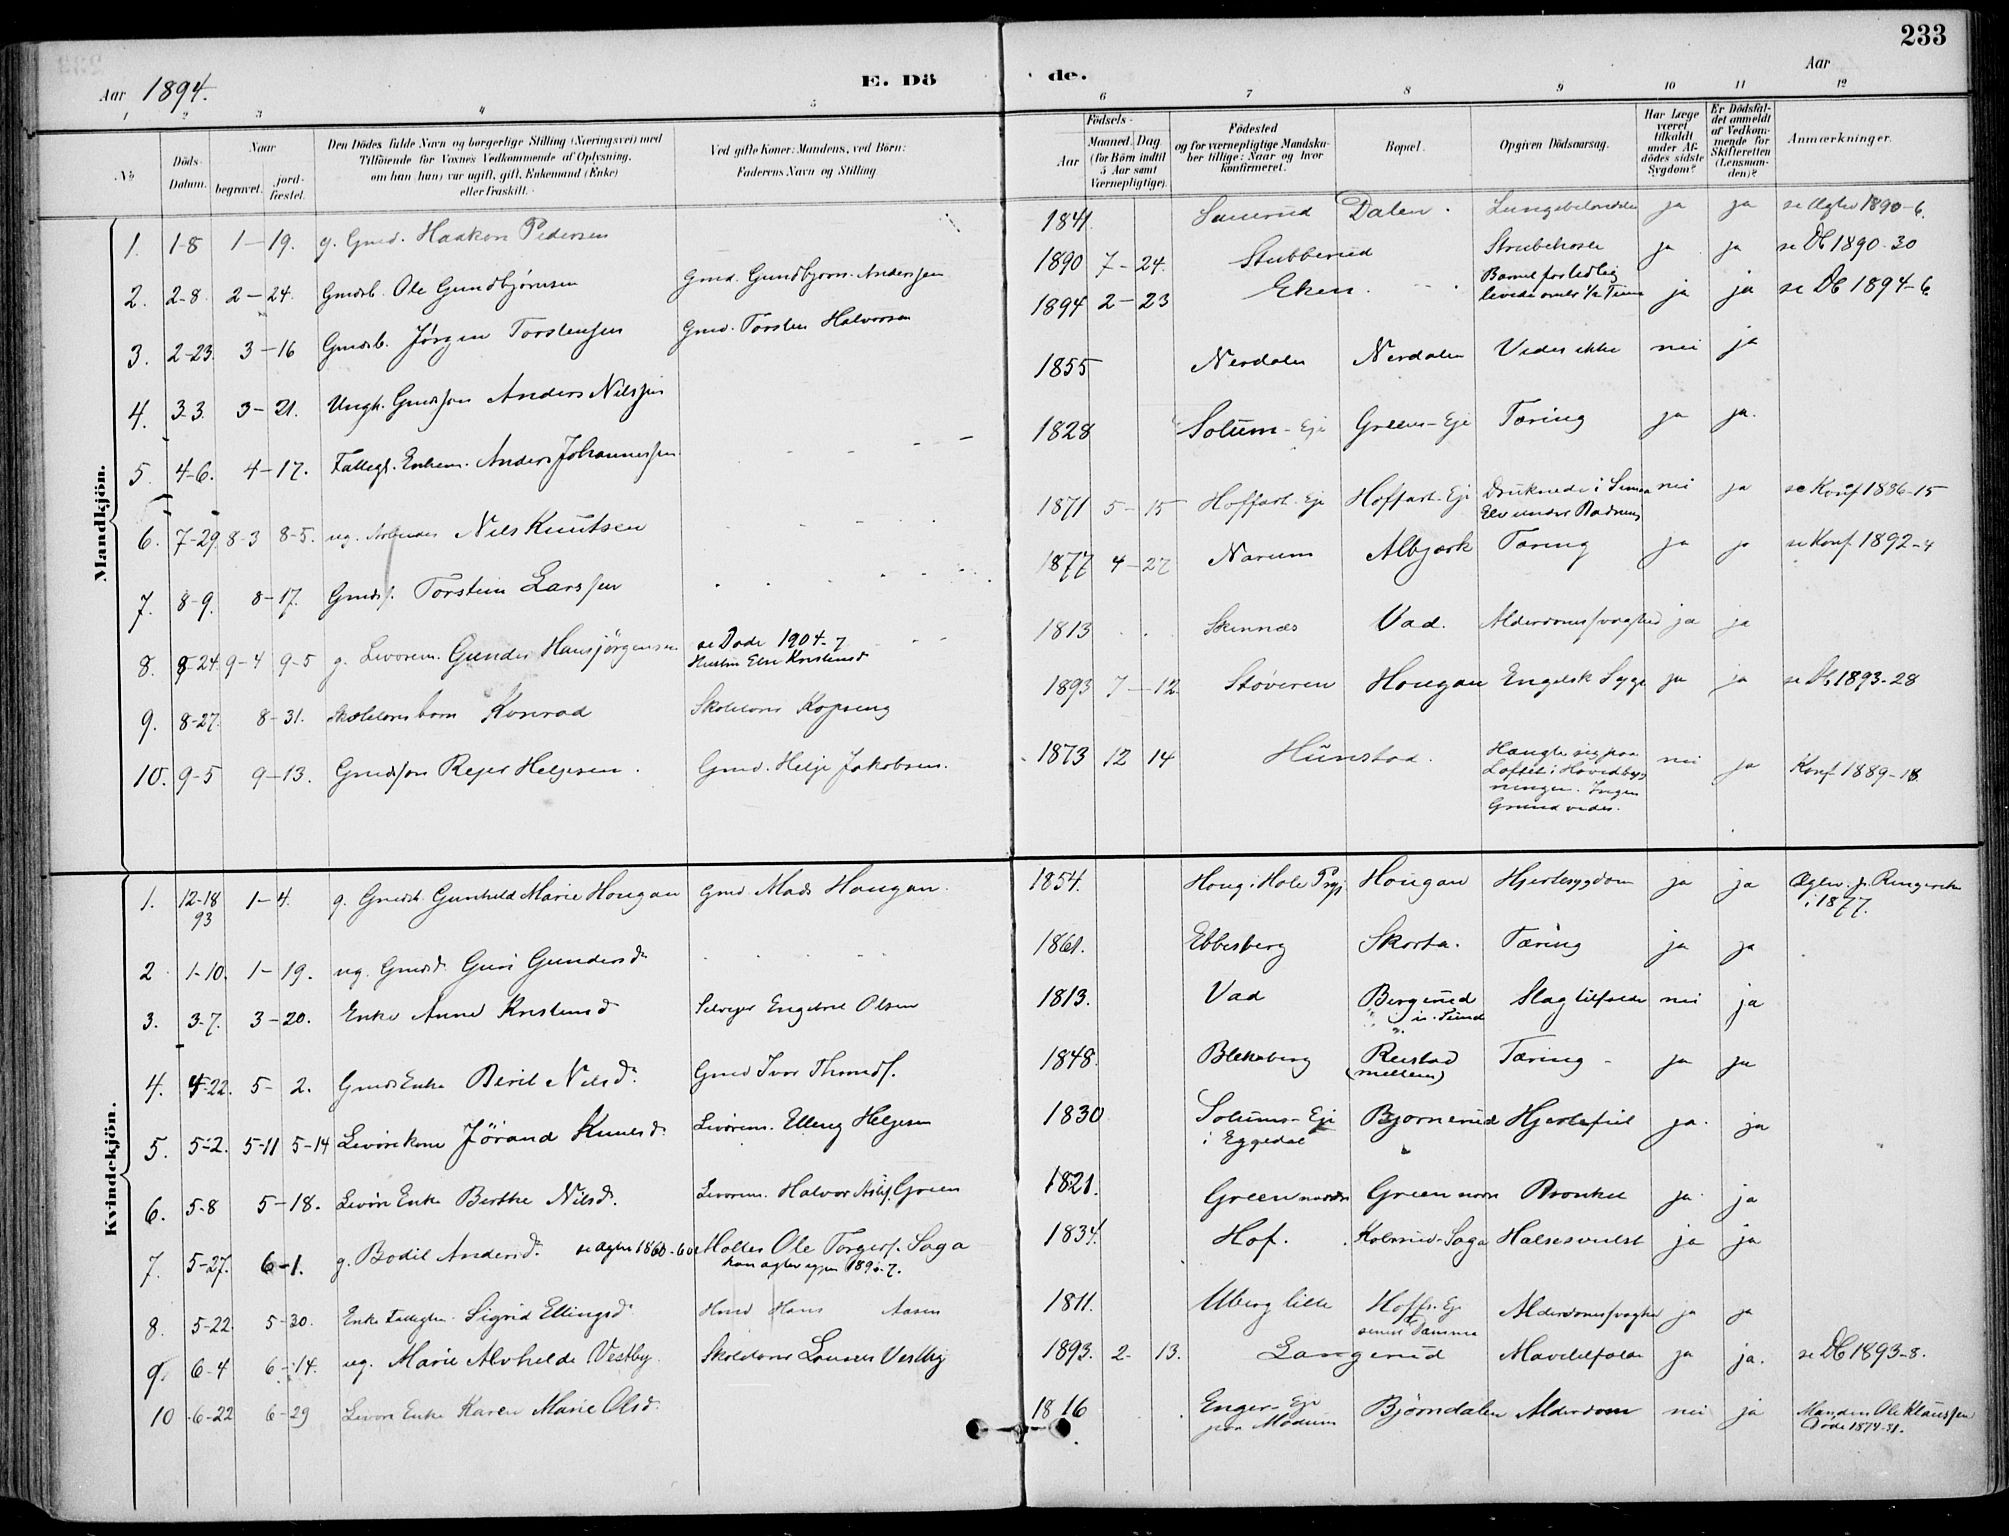 233
Aar 1894.
E. Dö
de.
Aar
1 2 3 4 5 6 7 8 9 10 11 12
No
Döds-Datum.
Naar
begravet.
jordfæstet.
Den Dödes fulde Navn og borgerlige Stilling (Næringsvei) med
Tilföiende for Voxnes Vedkommende af Oplysning,
om han (hun) var ugift, gift, Enkemand (Enke)
eller fraskilt.
Ved gifte Koner: Mandens, ved Börn:
Faderens Navn og Stilling
Födsels-
Aar
Maaned. Dag
(for Börn indtil
5 Aar samt
Værnepligtige).
Födested
og for værnepligtige Mandskaber tillige: Naar og hvor
konfirmeret.
Bopæl.
Opgiven Dödsaarsag.
Har Læge
været
tilkaldt
under Afdödes sidste
Sygdom?
Er Dödsfaldet anmeldt
af Vedkommende for
Skifteretten
(Lensmanden)?
Anmærkninger.
Mandkjön.
1. 1-8 1-19. g. Gmd. Haakon Pedersen 1841. Dalen. ja ja 1890-6.
2. 2-8. 2-24. Gmdsb. Ole Gundbjörnsen Gmd. Gundbjørn Anderssen 1890 7-24. Stubberud Strubehoste ja ja se Db 1890-30
3. 2-23. 3-16 Gmdsb. Jörgen Torstensen Gmd. Torsten Halvorsen 1894 2-23 Eken. ja ja se Db 1894-6
4. 3-3. 3-21. Ungk. Gmdsøn Anders Nilssen 1855 Nerdalen Nerdalen Vides ikke nei ja
5. 4-6. 4-17. Fattegl. Enkem. Anders Johannessen 1828 Solum-Eje Green-Eje Tæring ja ja.
6. 7-29. 8-3 8-5. ug. Nils Knutsen 1871 5-15 Hoffart-Eje Hoffart-Eje Druknede i Simoa Elv under Badning nei ja se Konf 1886-15
7. 8-9. 8-17. Gmds. Torstein Larssen 1877 4-27 Narum Albjerk Tæring ja ja se Konf. 1892-4
8. 8-24 9-4 9-5 g. Levorem. Gunder Hansjörgensen se Døde 1904-7
Hustru Else Kristensd 1813 Skinnæs Vad. Alderdomssvaghed ja ja
9. 8-27. 8-31. Skoleløresbarn Konrad Skoleløres Kopseng 1893 7-12 Støveren Hougan Engelsk Syge ja ja se Db 1893-28
10. 9-5 9-13. Gmdssøn Rejer Helgesen. Gmd. Helge Jakobsen. 1873 12 14 Hunstad. Hængte sig paa Loftet i Hovedbygningen. Ingen Grund vides. nei ja Konf 1889-18
Kvindekjön.
1. 12-18 93 1-4. g. Gmdsk Gunhild Marie Hougan Gmd Mads Hougan. 1854. Houg i Hole Hougan Hjertesygdom ja ja Ringerike i 1877.
2 1-10. 1-19. ug. Gmdsd. Guri Gundersd. 1861. Ebbesberg Skorta. Tæring ja ja
3. 3-7. 3-20. Enke Anne Kristensd Selvejer Engebret Olsen 1813. Vad Bergerud Slagtilfælde nei ja
4. 4-22. 5-2. Gmds Enke Berit Nilsd. Gmd Ivar Thronds. 1848. Blekeberg Reistad (mellem) Tæring ja ja
5. 5-2. 5-11 5-14 Levörskone Jörand Knutsd. Levørem. Elling Helgesen 1830 Solums-Eje i Eggedal Bjørnerud Hjertefeil ja. ja
6. 5-8 5-18. Levörs Enke Berthe Nilsd. Levorem. Halvor Nils. Green 1821. Green nordre Green norn Bronkit ja. ja
7. 5-27. 6-1. g. Bodil Andersd. Ole Torgers. Saga 1834. Hof. Kolsrud-Saga Halsesvulst ja ja
8. 5-22. 5-30. Enke Fattiglem. Sigrid Ellingsd. Hmd Hans Aasen 1811. Uberg lille Hoffs. Eje Alderdomssvaghed ja ja
9. 6-4 6-14. ug. Marie Alvhilde Vestby. Skoleløres Vestby 1893. 2- 13. Langerud Mavetilfælde ja ja. se Db 1893-8.
10 6-22 6-29 Levørs Enke Karen Marie Olsd. 1816 Enger-Eje paa Modum Björndalen Alderdom nei ja Manden Ole Klaussen Døde 1874-31.